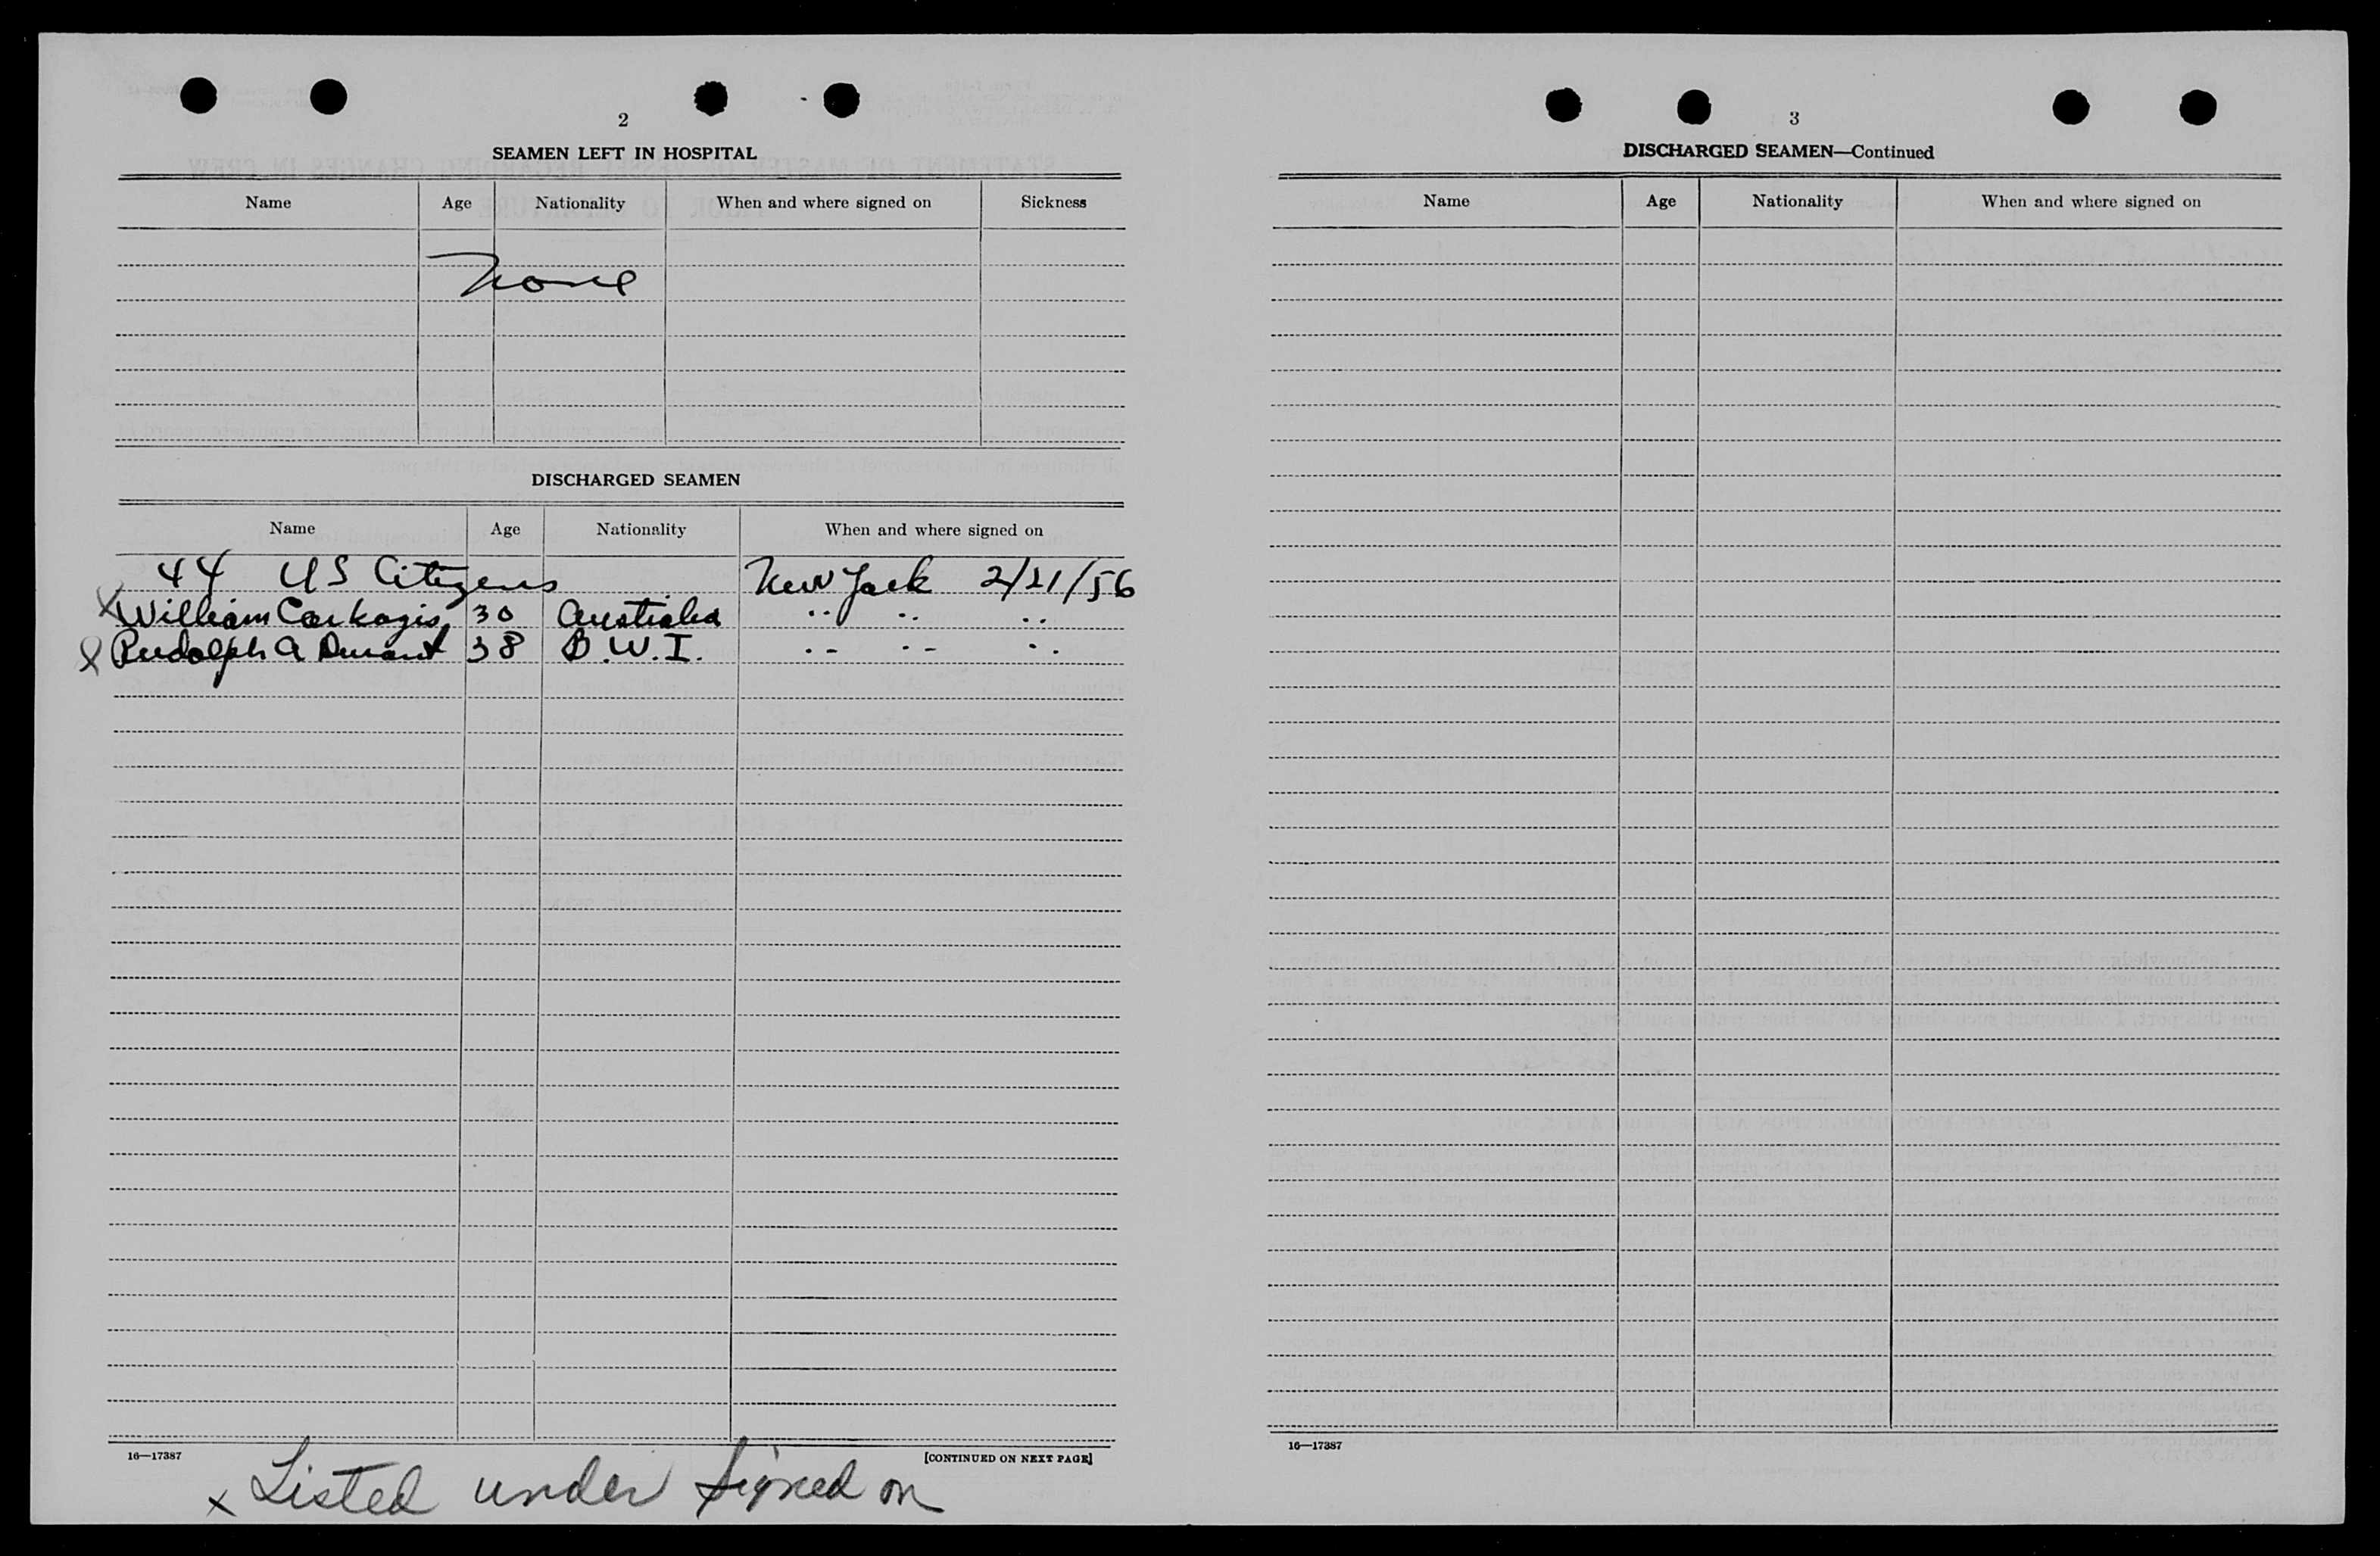 2
SEAMEN LEFT IN HOSPITAL
Name Age Nationality When and where signed on Sickness
None
DISCHARGED SEAMEN
Name Age Nationality When and where signed on
44 US Citizens New York 2/21/56
x William Carkagis 30 Australia .. .. ..
x Rudolph A Durant 38 B.W.I. .. .. ..
16—17387
[CONTINUED ON NEXT PAGE]
x Listed under signed on
3
DISCHARGED SEAMEN—Continued
Name Age Nationality When and where signed on
16—17387